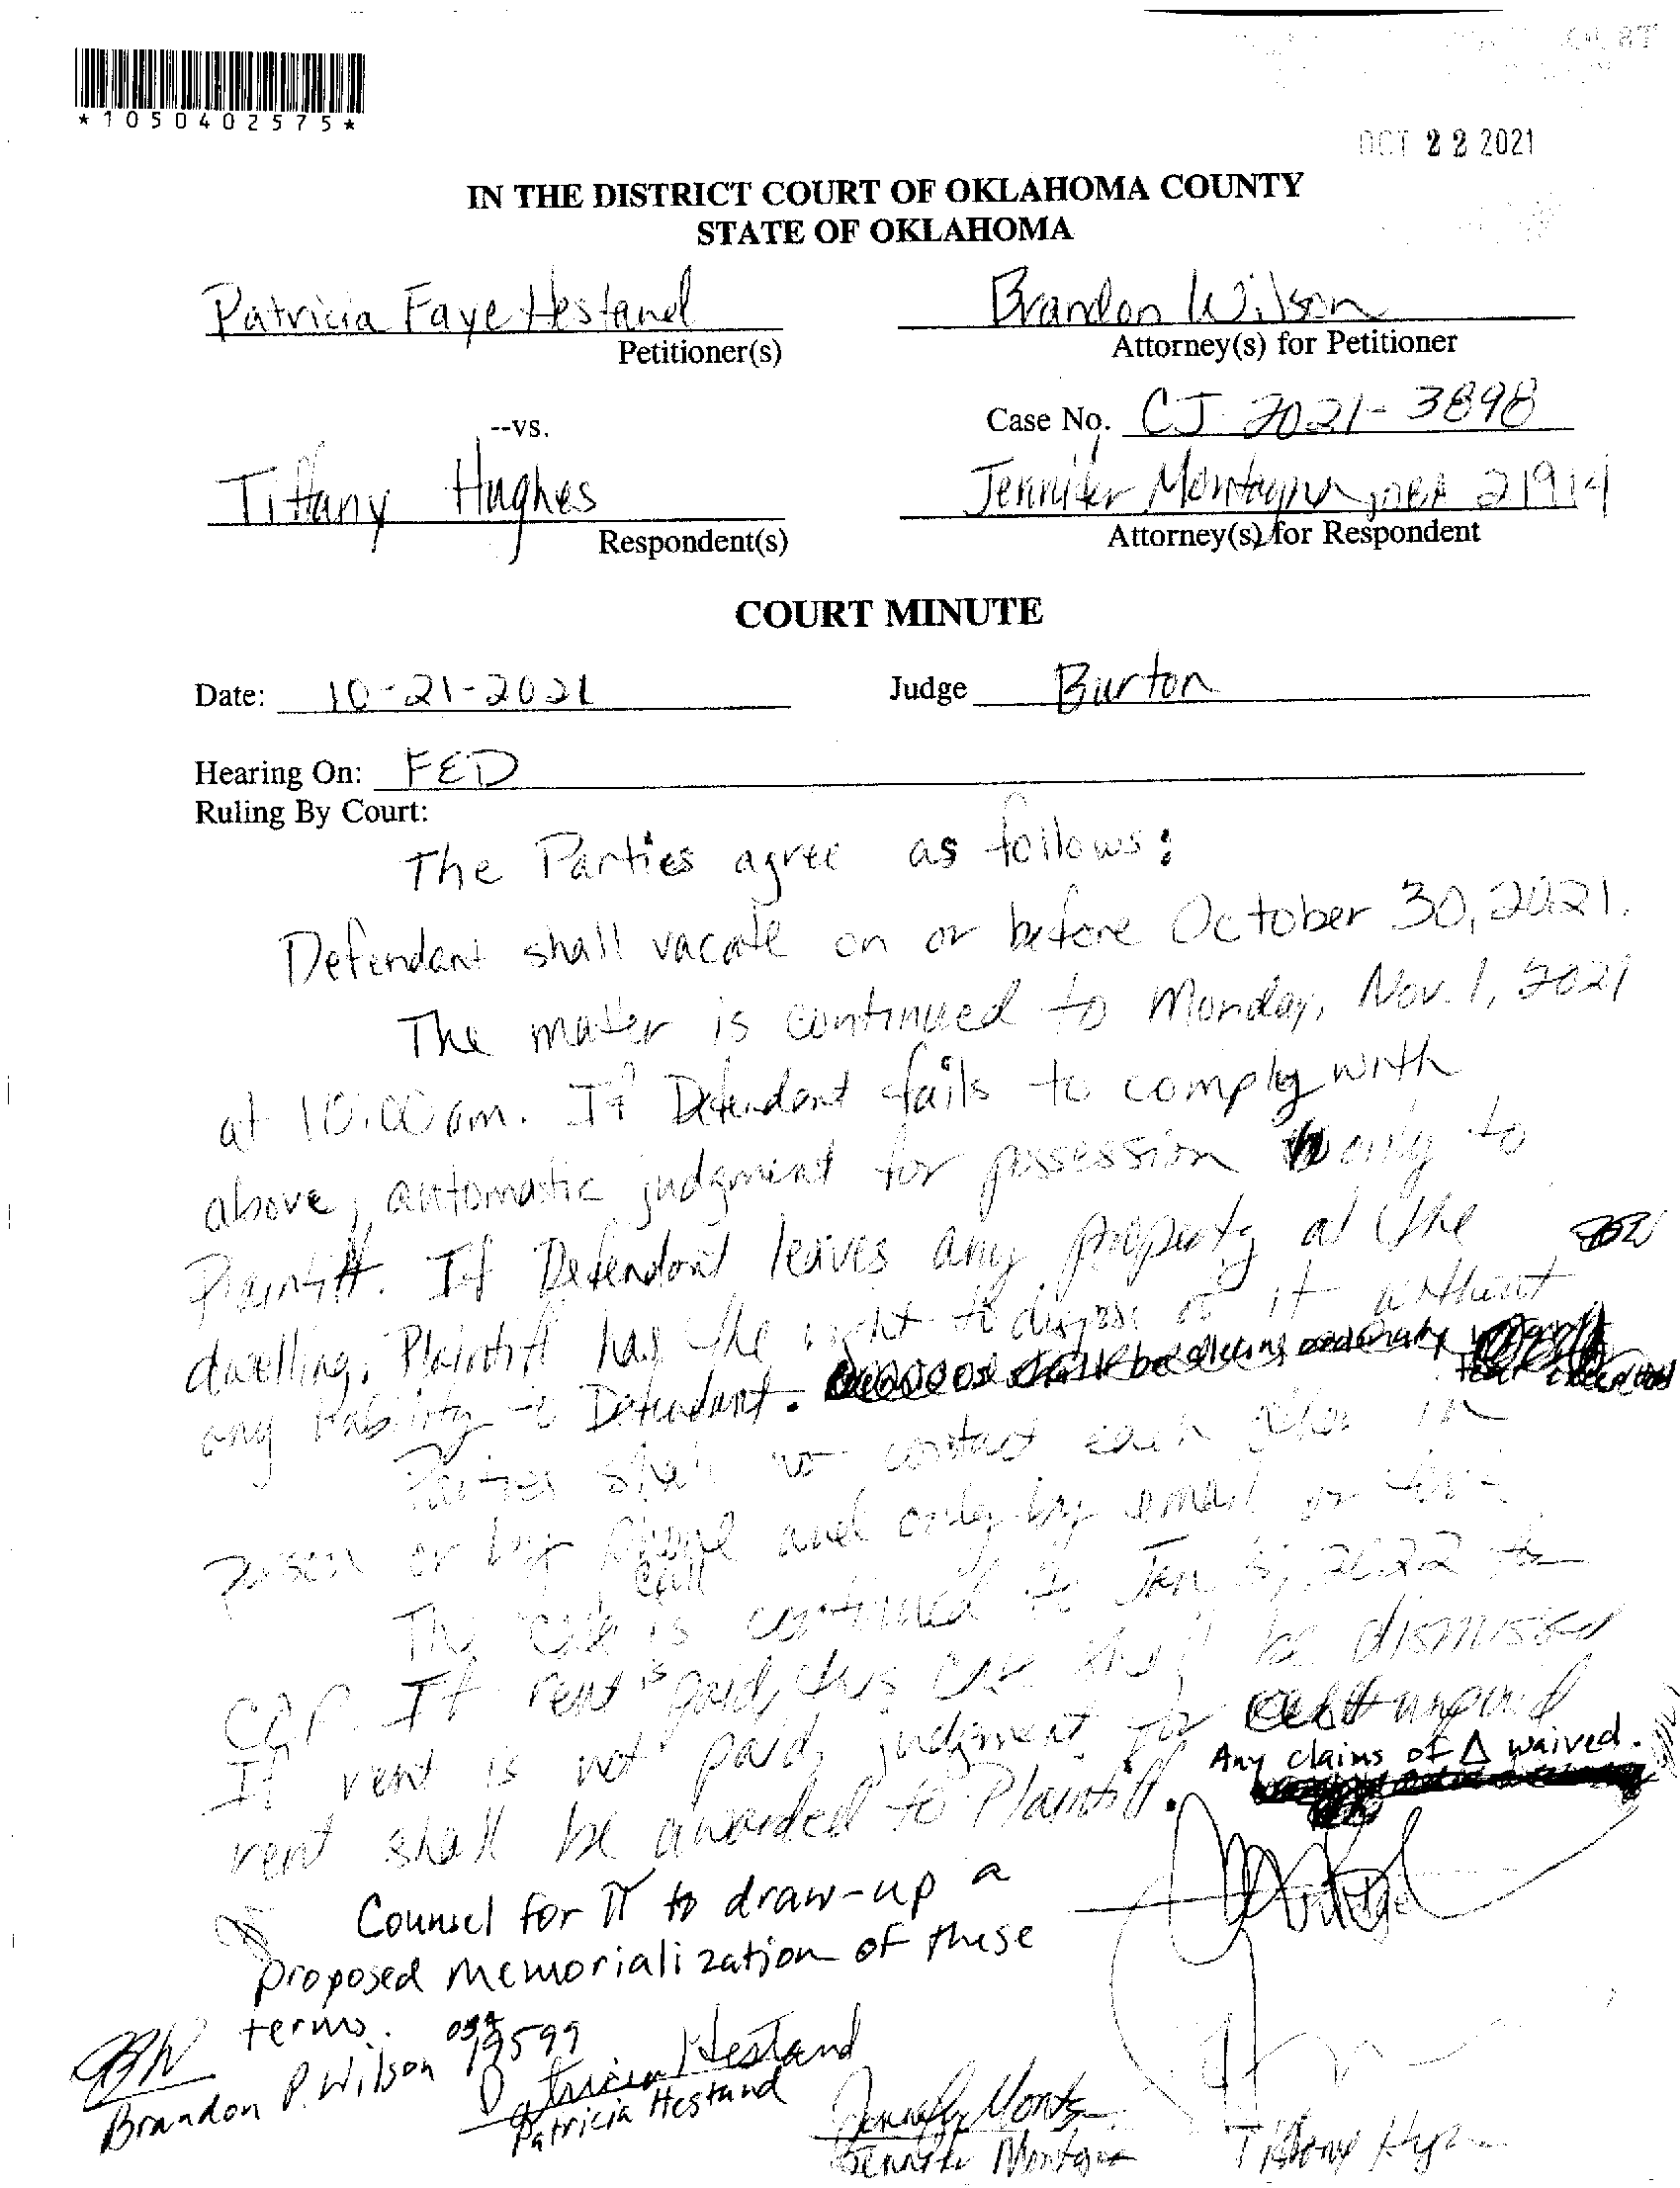 *1050402575*
OCT 22 2021
IN THE DISTRICT COURT OF OKLAHOMA COUNTY
STATE OF OKLAHOMA
Patricia Faye Hestand
Petitioner(s)
Brandon Wilson
Attorney(s) for Petitioner
--vs.
Case No. CJ-2021-3898
Tiffany Hughes
Respondent(s)
Jennifer Montagna OBA 21914
Attorney(s) for Respondent
COURT MINUTE
Date: 10-21-2021
Judge Burton
Hearing On: FED
Ruling By Court:
The Parties agree as follows:
Defendant shall vacate on or before October 30, 2021.
The matter is continued to Monday, Nov. 1, 2021
at 10:00 am. If Defendant fails to comply with
above, automatic judgment for possession only to
Plaintiff. If Defendant leaves any property at the
dwelling, Plaintiff has the right to dispose of it without
any liability to Defendant.
Parties shall no contact each other in
person or by phone call and only by email or
The case is continued to Jan 3, 2022
If rent is paid, this case shall be dismissed
If rent is not paid, judgment for unpaid
rent shall be awarded to Plaintiff. Any claims of Δ waived.
Judge
Counsel for π to draw-up a
proposed memorialization of these
terms.
BW
Brandon P. Wilson OBA 19599
Patricia Hestand
Patricia Hestand
Jennifer Montagna
Tiffany Hughes